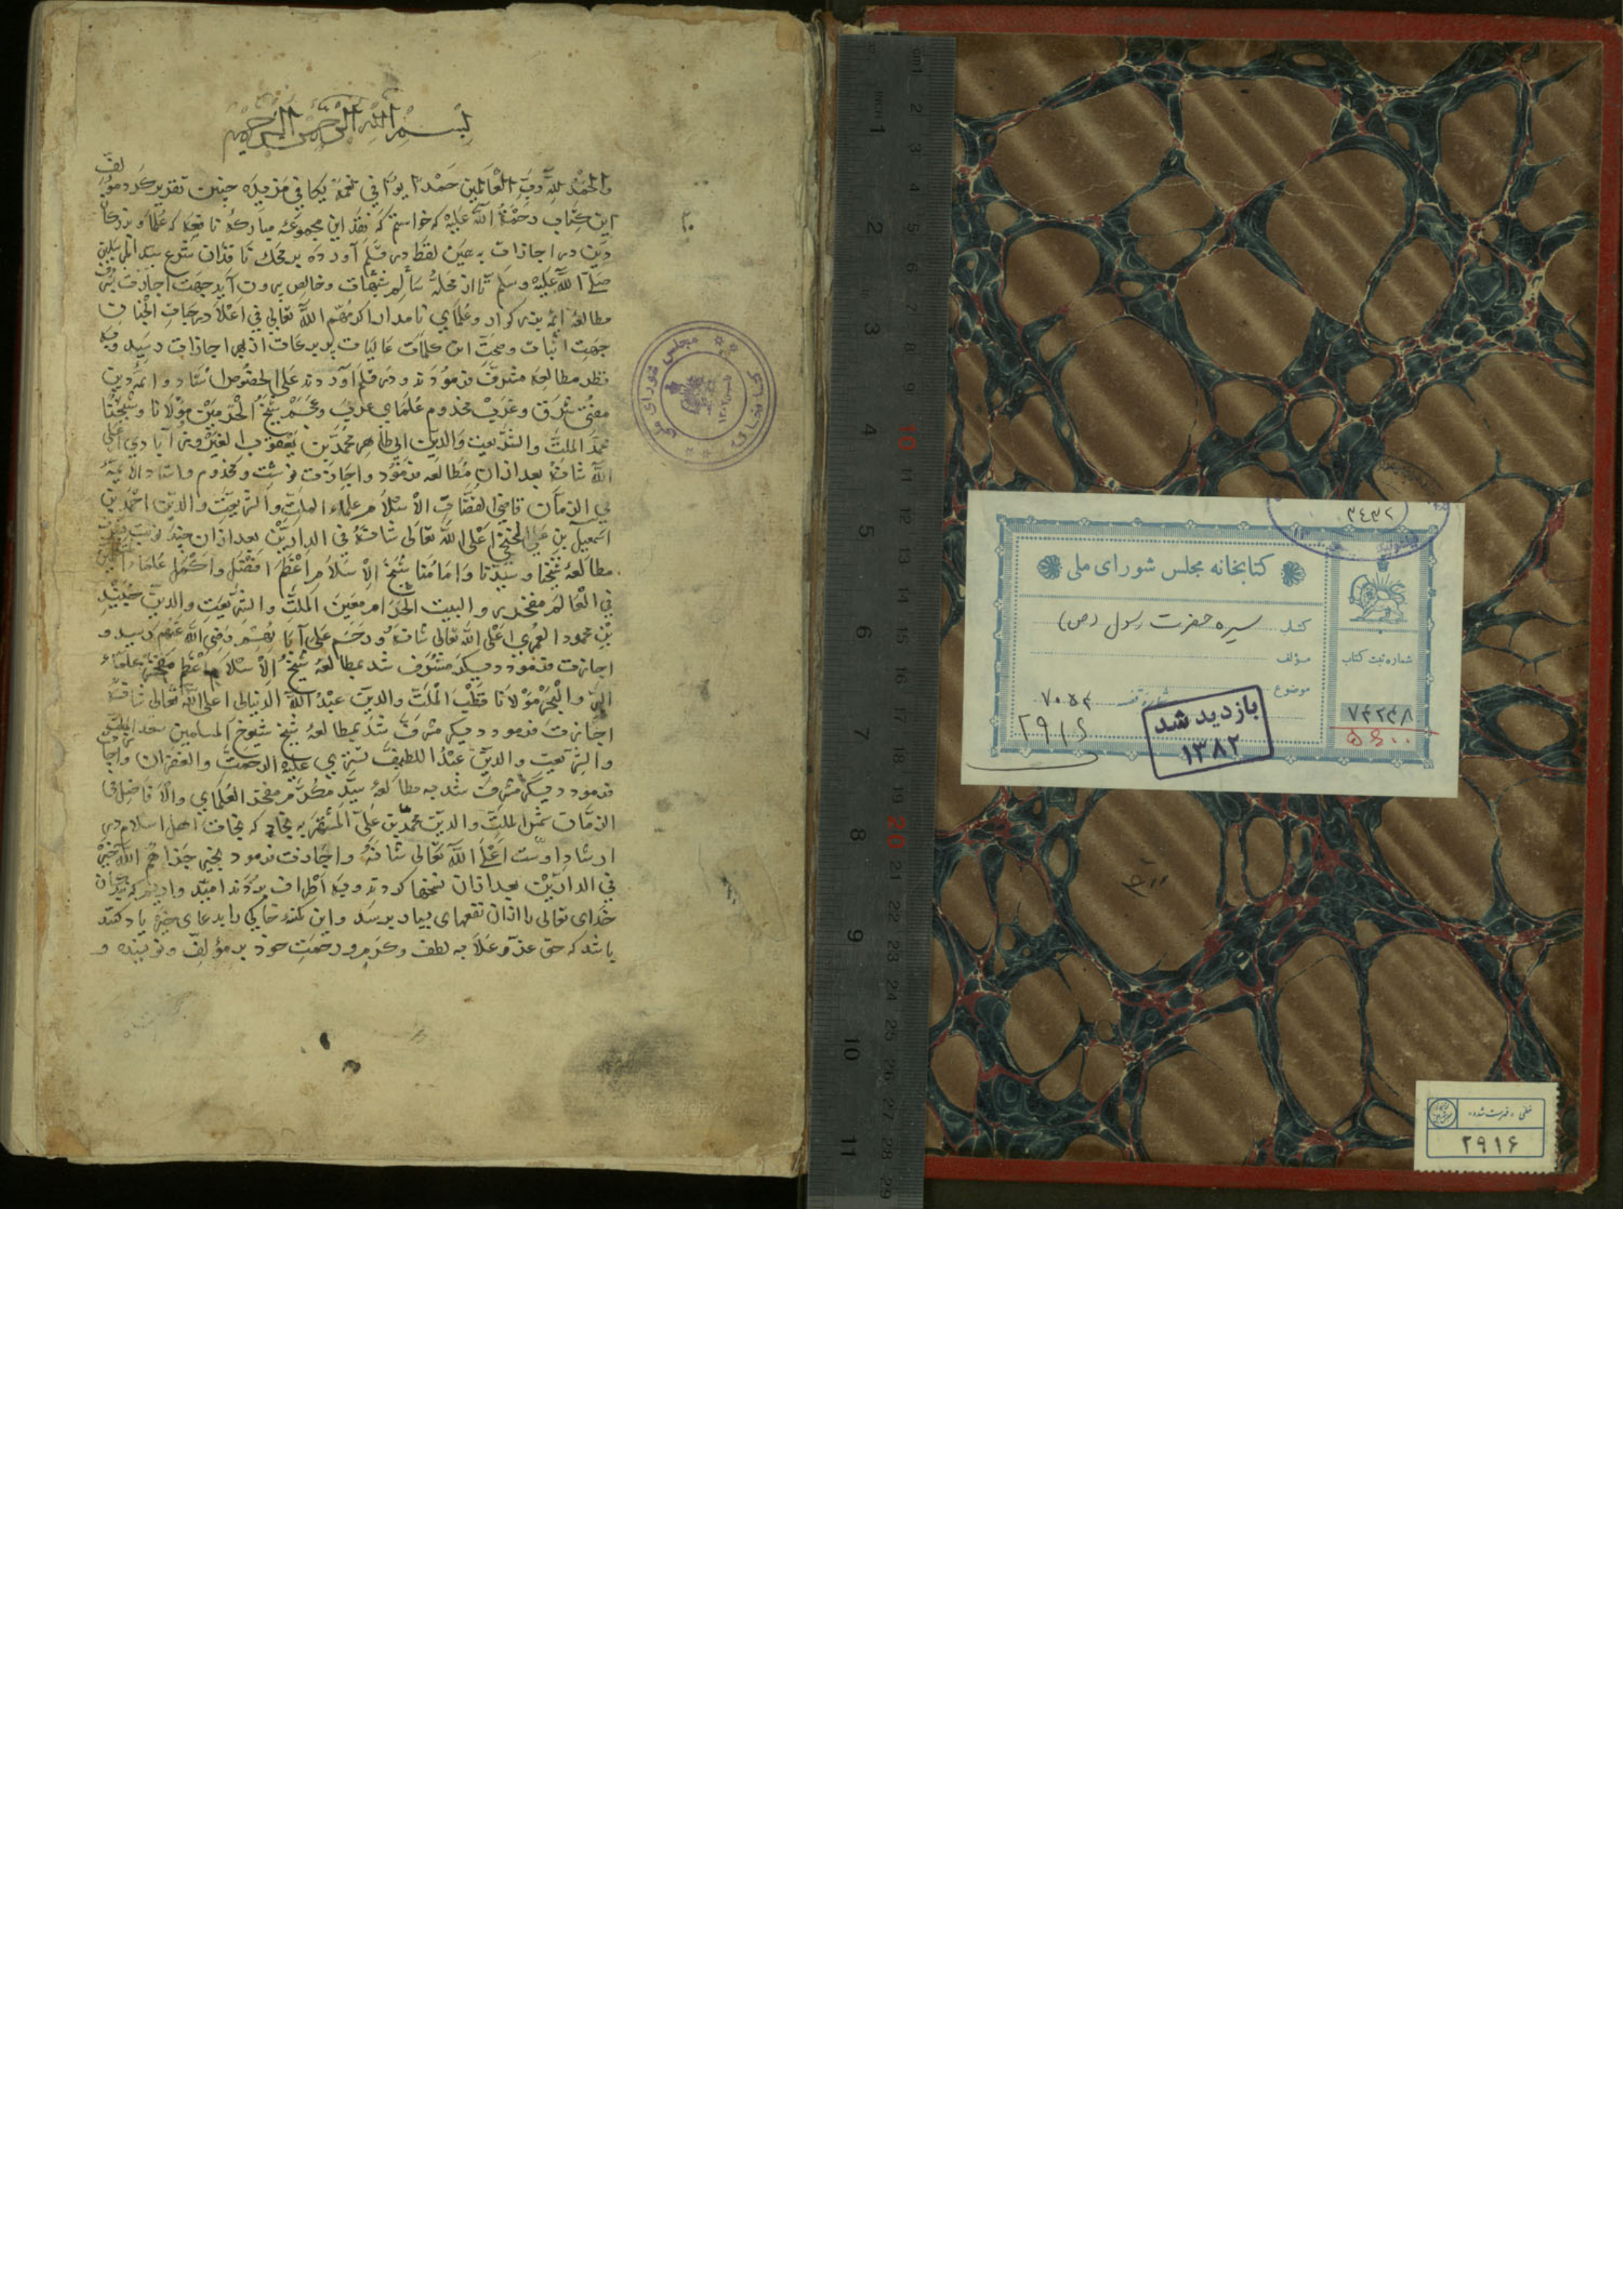 بسم الله الرحمن الرحیم
والحمد لله رب العالمین حمدا یوافی نعمه یکافی مزیده چنین تقریر کرد مؤلف
این کتاب رحمة الله علیه که خواستم که نقد این مجموعه مبارکه نافعه که علما و بزرکان
دین در اجازات به همین لفظ در قلم آورده بر محک ناقدان شرع سید المرسلین
صلی الله علیه وسلم تا از محله سالم شبهات وخالص بیرون آید جهت اجازت
مطالعه ائمه بزرکوار وعلمای نامدار اکرمهم الله تعالی فی اعلا درجات الجنان
جهت اثبات وصحت این کلمات عالیات اجازات رسید وبه
نظر مطالعه مشرف فرمودند ودر قلم آوردند علی الخصوص استاد وائمه دین
مفتی شرق وغرب مخدوم علمای عرب وعجم شیخ الحرمین مولانا وشیخنا
مجد الملت والشریعت والدین ابی طاهر محمد بن یعقوب الفیروزآبادی اعلی
الله شانه بعد از ان مطالعه فرمود واجازت نوشت ومخدوم واستاد الائمه
فی الزمان قاضی القضات الاسلام علاء الملت والشریعت والدین احمد بن
اسمعیل بن علی اعلی الله تعالی شانه فی الدارین بعد از ان چند نوبت
مطالعه شیخنا وسیدنا وامامنا شیخ الاسلام اعظم افضل واکمل علماء
فی العالم مفخر والبیت الحرام معین الملت والشریعت والدین جنید
بن محمود العمری اعلی الله تعالی شانه ورحم علی آبائهم رضی الله عنهم رسید و
اجازت فرمود دیکر مشرف شد بمطالعه شیخ الاسلام اعظم مفخر علماء
البر والبحر مولانا قطب الملت والدین عبد الله اعلی الله تعالی شانه
اجازت فرمود دیکر مشرف شد بمطالعه شیخ شیوخ المسلمین سعد الملت
والشریعت والدین عبد اللطیف علیه الرحمت والغفران واجازت
فرمود دیکر مشرف شد به مطالعه سید مکرم مفخر العلمای والافاضل فی
الزمان شمس الملت والدین محمد بن علی المشتهر به که نجات اهل اسلام در
ارشاد اوست اعلی الله تعالی شانه واجازت فرمود بخیر جزاهم الله خیرا
فی الدارین بعد از ان نسخها کردند وبه اطراف بردند امید واریم که بندکان
خدای تعالی را از ان نفعهای بسیار برسد واین کمینه خاکی را بدعای خیر یاد کنند
باشد که حق عز وعلا به لطف وکرم ورحمت خود بر مؤلف ونویسنده و
کتابخانه مجلس شورای ملی
۳۴۳۲
کتابخانه مجلس شورای ملی
کتاب سیره حضرت رسول (ص)
مؤلف
موضوع
شماره قفسه ۷۰۵۳
۲۹۱۶
شماره ثبت کتاب
۷۴۲۳۸
۵۶۰۰
بازدید شد
۱۳۸۲
خطی - فهرست شده
۲۹۱۶